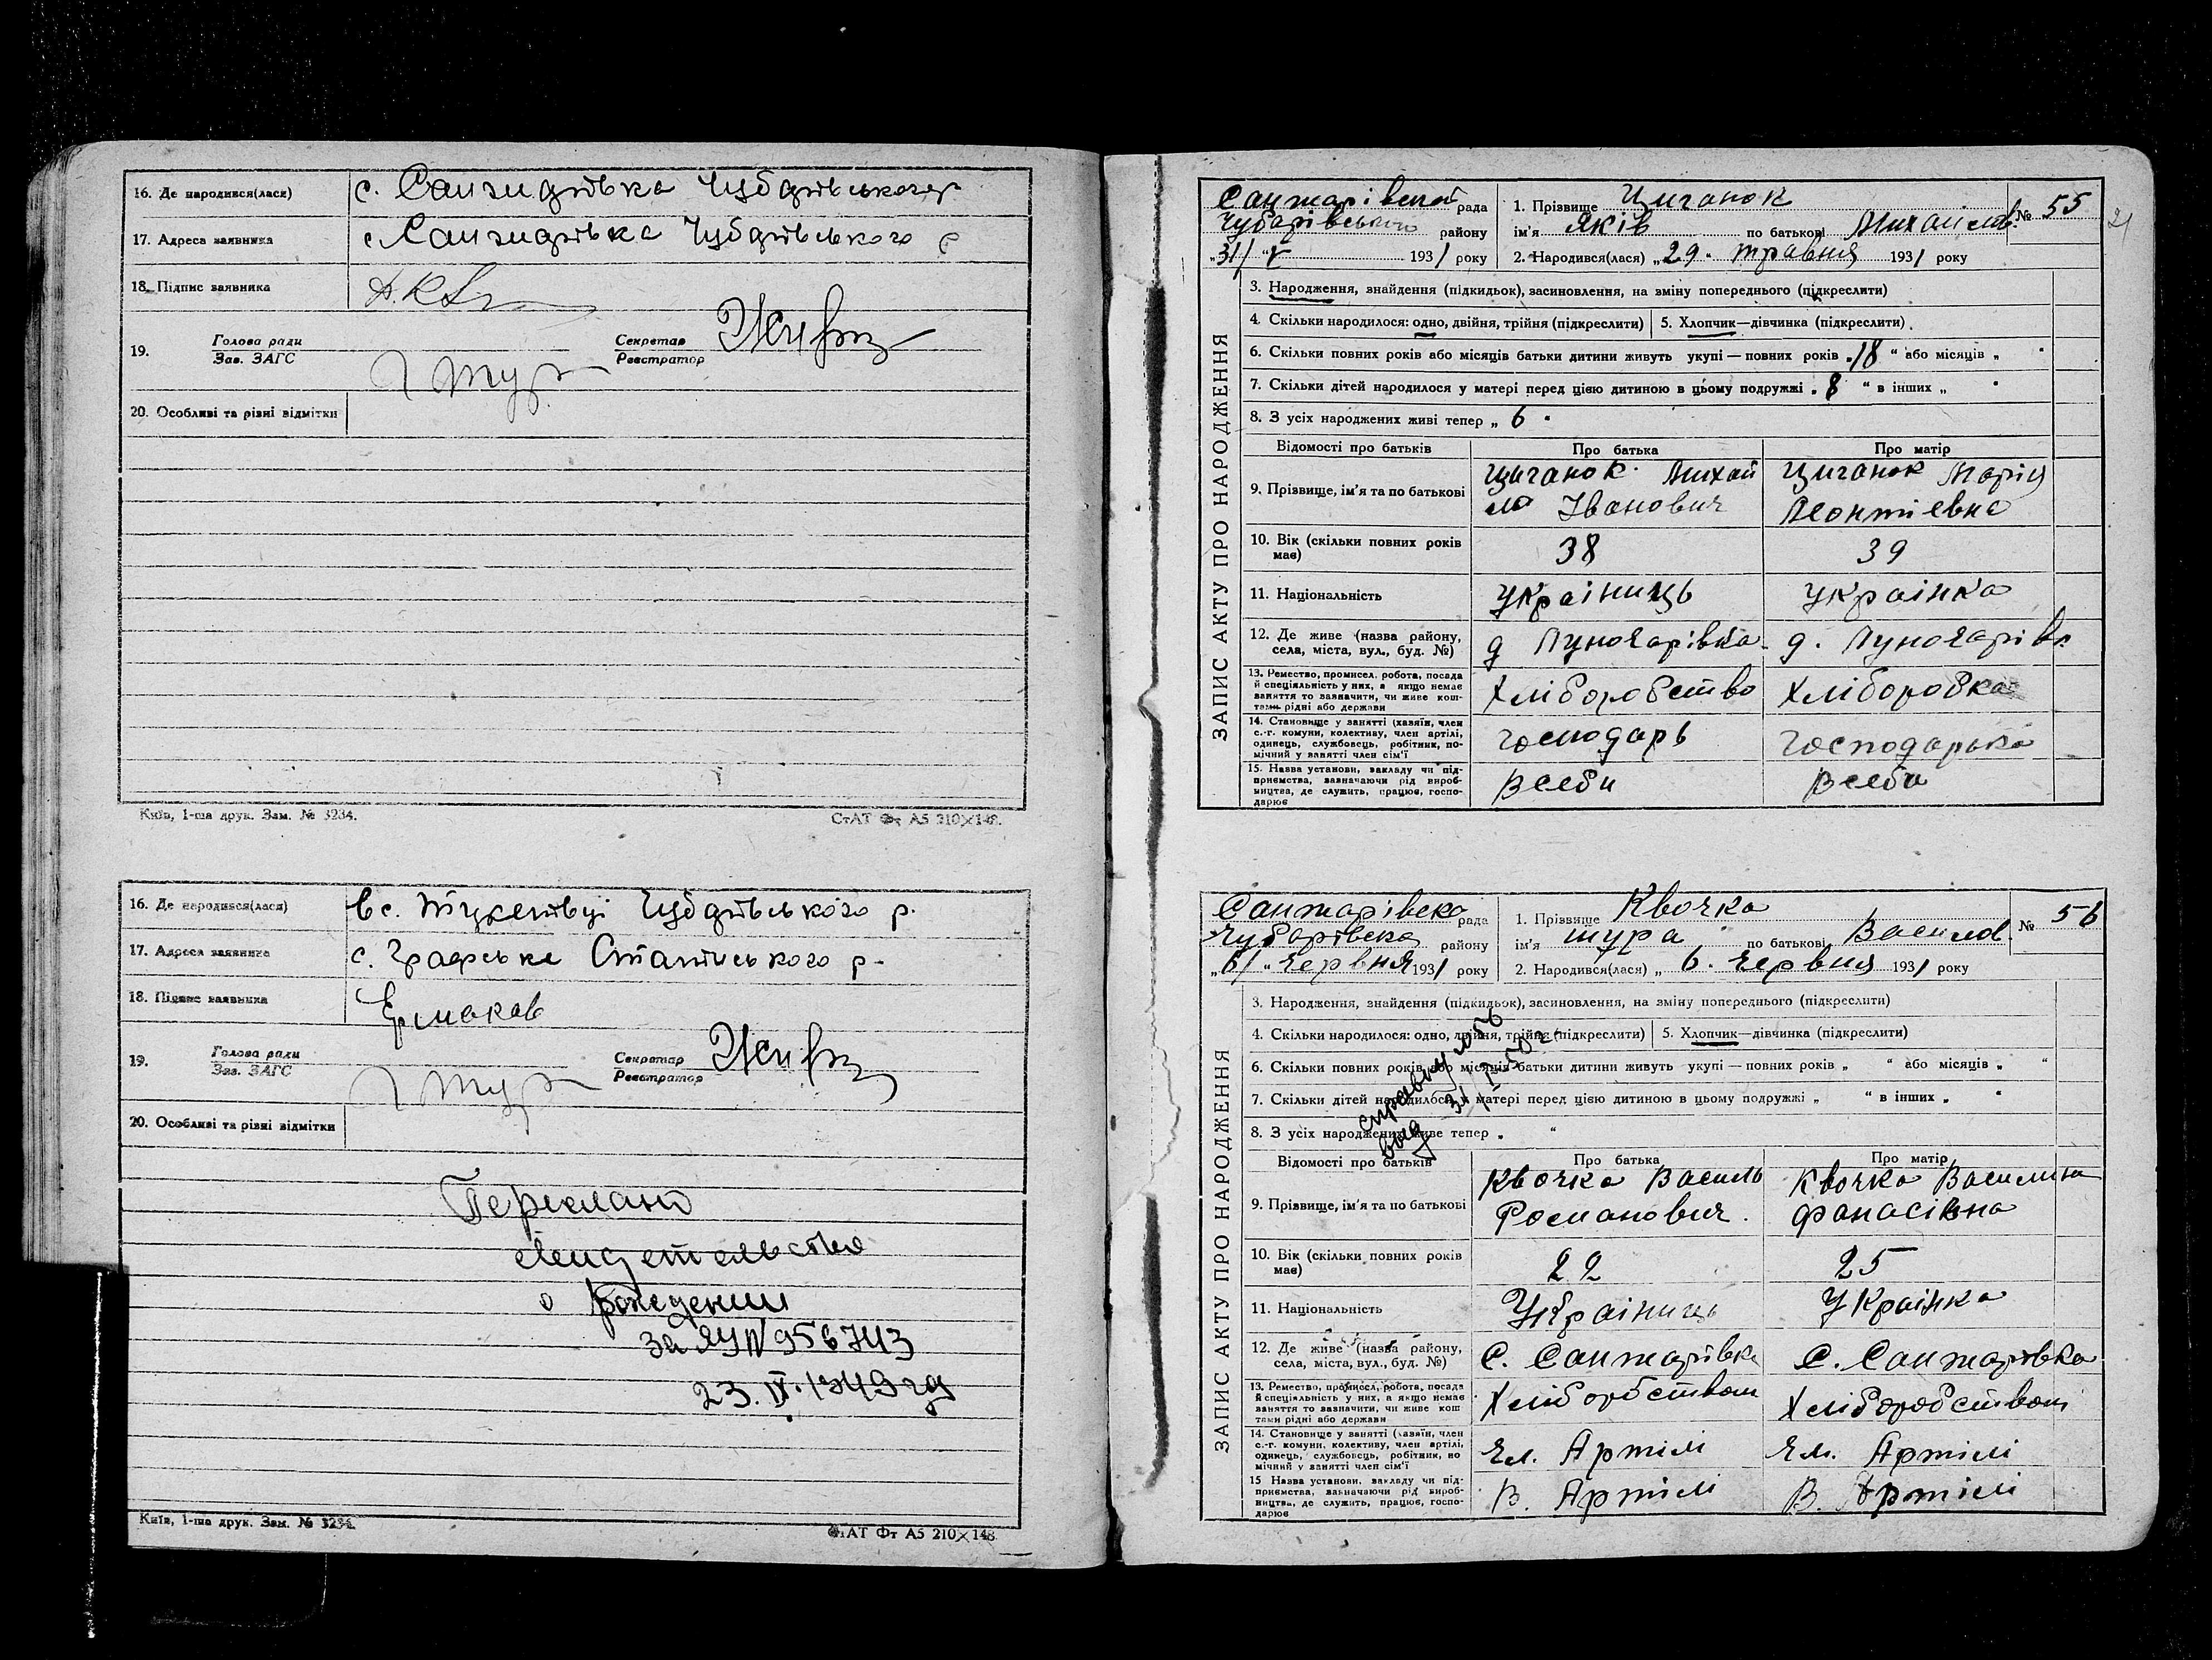 16. Де народився(лася) с. Санжарівка Чубарівського р
17. Адреса заявника с Санжарівка Чубарівського р
18. Підпис заявника
19. Голова ради
Зав. ЗАГС
Секретар
Реєстратор
20. Особливі та різні відмітки
Київ, 1-ша друк. Зам. № 3234.
СтАТ Фт А5 210×148.
16. Де народився(лася) в с.
Чубарівського р.
17. Адреса заявника с. Графське
р.
18. Підпис заявника Єрмаков
19. Голова ради
Зав. ЗАГС
Секретар
Реєстратор
20. Особливі та різні відмітки
свидетельство
о рождении
за ЯУ № 956743
23. IV. 1949 год
Київ, 1-ша друк. Зам. № 3234.
СтАТ Фт А5 210×148
21
ЗАПИС АКТУ ПРО НАРОДЖЕННЯ
Санжарівської рада
Чубарівського району
„31/ " V 1931 року
1. Прізвище Циганок
№ 55
ім'я Яків по батькові Михайлов.
2. Народився(лася) „29" травня 1931 року
3. Народження, знайдення (підкидьок), засиновлення, на зміну попереднього (підкреслити)
4. Скільки народилося: одно, двійня, трійня (підкреслити)
5. Хлопчик—дівчинка (підкреслити)
6. Скільки повних років або місяців батьки дитини живуть укупі — повних років „18" або місяців „ "
7. Скільки дітей народилося у матері перед цією дитиною в цьому подружжі „8" в інших „ "
8. З усіх народжених живі тепер „ 6 "
Відомості про батьків Про батька Про матір
9. Прізвище, ім'я та по батькові
Циганок Михай
ло Іванович
Циганок Марія
Леонтіевна
10. Вік (скільки повних років має) 38 39
11. Національність Українць Українка
12. Де живе (назва району,
села, міста, вул., буд. №)
д Луночарівка д. Луночарівк
13. Ремество, промисел, робота, посада
й спеціяльність у них, а якщо немає
заняття то зазначити, чи живе кош-
тами рідні або держави
Хліборобство Хліборобка
14. Становище у занятті (хазяїн, член
с.-г. комуни, колективу, член артілі,
одинець, службовець, робітник, по-
мічний у занятті член сім'ї
господарь господарька
15. Назва установи, закладу чи під-
приємства, зазначаючи рід вироб-
ництва, де служить, працює, госпо-
дарює
Всеби Всеби
ЗАПИС АКТУ ПРО НАРОДЖЕННЯ
Санжарівско рада
Чубарівско району
„6/" Червня 1931 року
1. Прізвище Квочка
№ 56
ім'я Шура по батькові Василов.
2. Народився(лася) „ 6. Червня 1931 року
3. Народження, знайдення (підкидьок), засиновлення, на зміну попереднього (підкреслити)
4. Скільки народилося: одно, двійня, трійня (підкреслити)
5. Хлопчик—дівчинка (підкреслити)
6. Скільки повних років або місяців батьки дитини живуть укупі — повних років „ " або місяців „ "
7. Скільки дітей народилося у матері перед цією дитиною в цьому подружжі „ " в інших „ "
8. З усіх народжених живе тепер „ "
справку
выд
Відомості про батьків Про батька Про матір
9. Прізвище, ім'я та по батькові
Квочка Василь
Романович.
Квочка Василина
Фанасівна
10. Вік (скільки повних років має) 22 25
11. Національність Українць Українка
12. Де живе (назва району,
села, міста, вул., буд. №)
С. Санжарівка С. Санжарівка
13. Ремество, промисел, робота, посада
й спеціяльність у них, а якщо немає
заняття то зазначити, чи живе кош
тами рідні або держави
Хліборобством Хліборобством
14. Становище у занятті (хазяїн, член
с.-г. комуни, колективу, член артілі,
одинець, службовець, робітник, по
мічний у занятті член сім'ї
Чл. Артілі Чл. Артілі
15 Назва установи, закладу чи під-
приємства, зазначаючи рід вироб-
ництва, де служить, працює, госпо-
дарює
В. Артілі В. Артілі